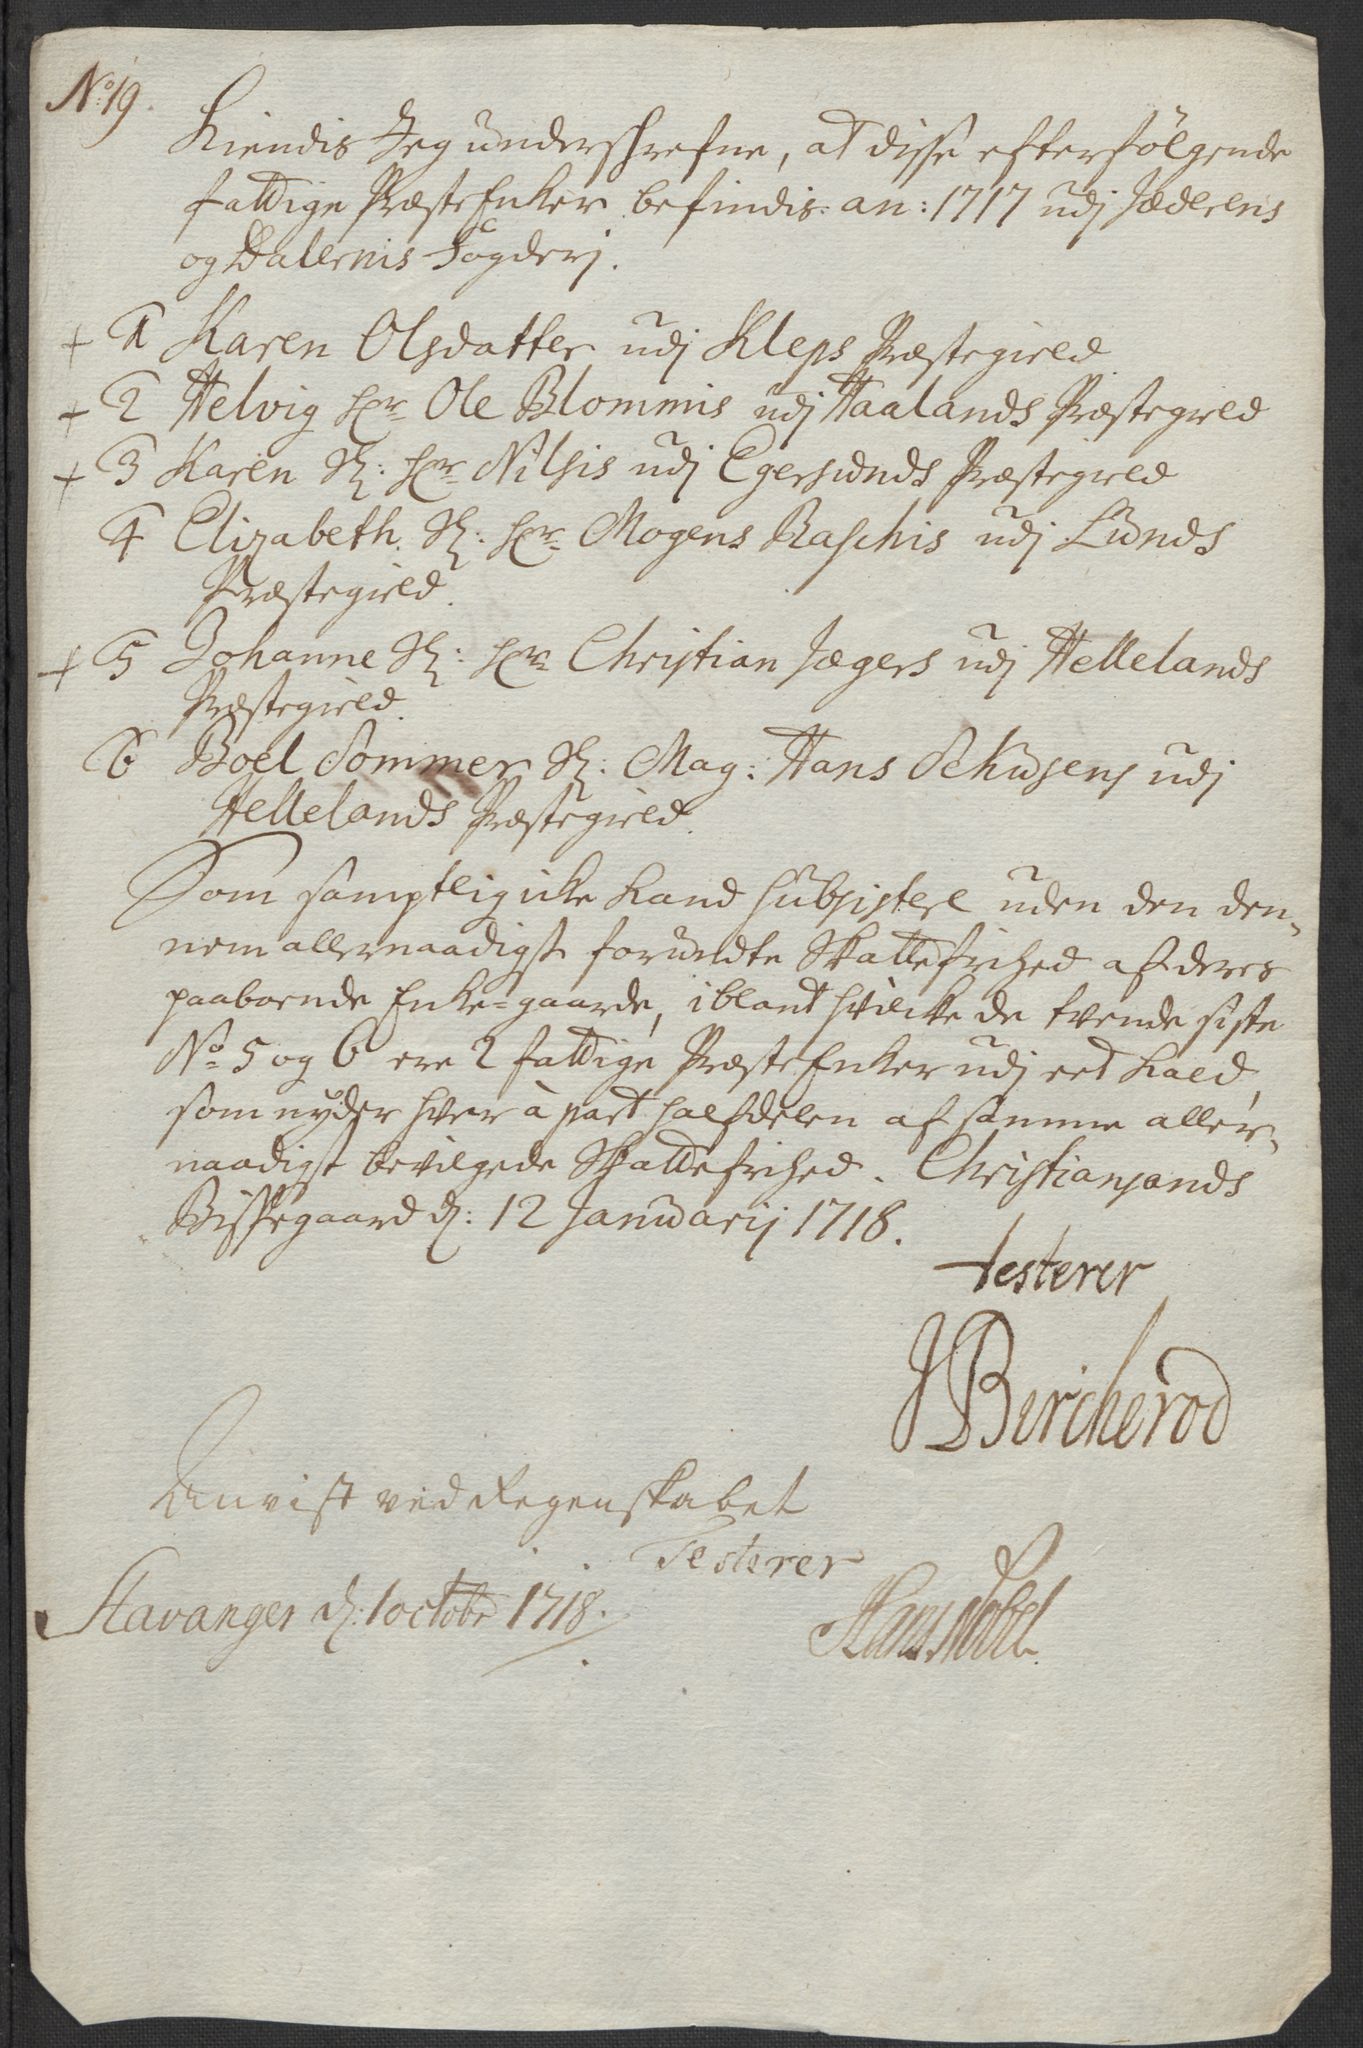 No 19.
Kiendis Jeg underschrefne, at disse efterfølgende
fattige Præste Enker befindis an: 1717 udj Jæderens
og Dalernis Fogderj.
+ 1 Karen Olsdatter udj Kleps Præstegield
+ 2 Helvig Hr Ole Blommis udj Haalands Præstegield
+ 3 Karen Sl: Hr Nilsis udj Egersunds Præstegield
4 Elizabeth Sl: Hr Mogens Raschis udj Lunds
Præstegield.
+ 5 Johanne Sl: Hr Christian Jægers udj Hellelands
Præstegield.
6 Boel Sommer Sl: Mag: Hans Schusens udj
Hellelands Præstegield.
Som samptlig icke kand subsistere uden den den-
nem allernaadigst forundte Skattefrihed af deres
paaboende Enke-gaarde, iblant hvilcke de tvende siste
No 5 og 6 ere 2 fattige Præste Enker udj eet Kald,
som nyder hver à part halfdelen af samme aller-
naadigst bevilgede Skattefrihed. Christiansands
Bispegaard d: 12 Januarij 1718.
testerer
JBircherod
Anvist ved Regenskabet
Testerer
Stavanger d: 1 octobr 1718.
Hans Nobel